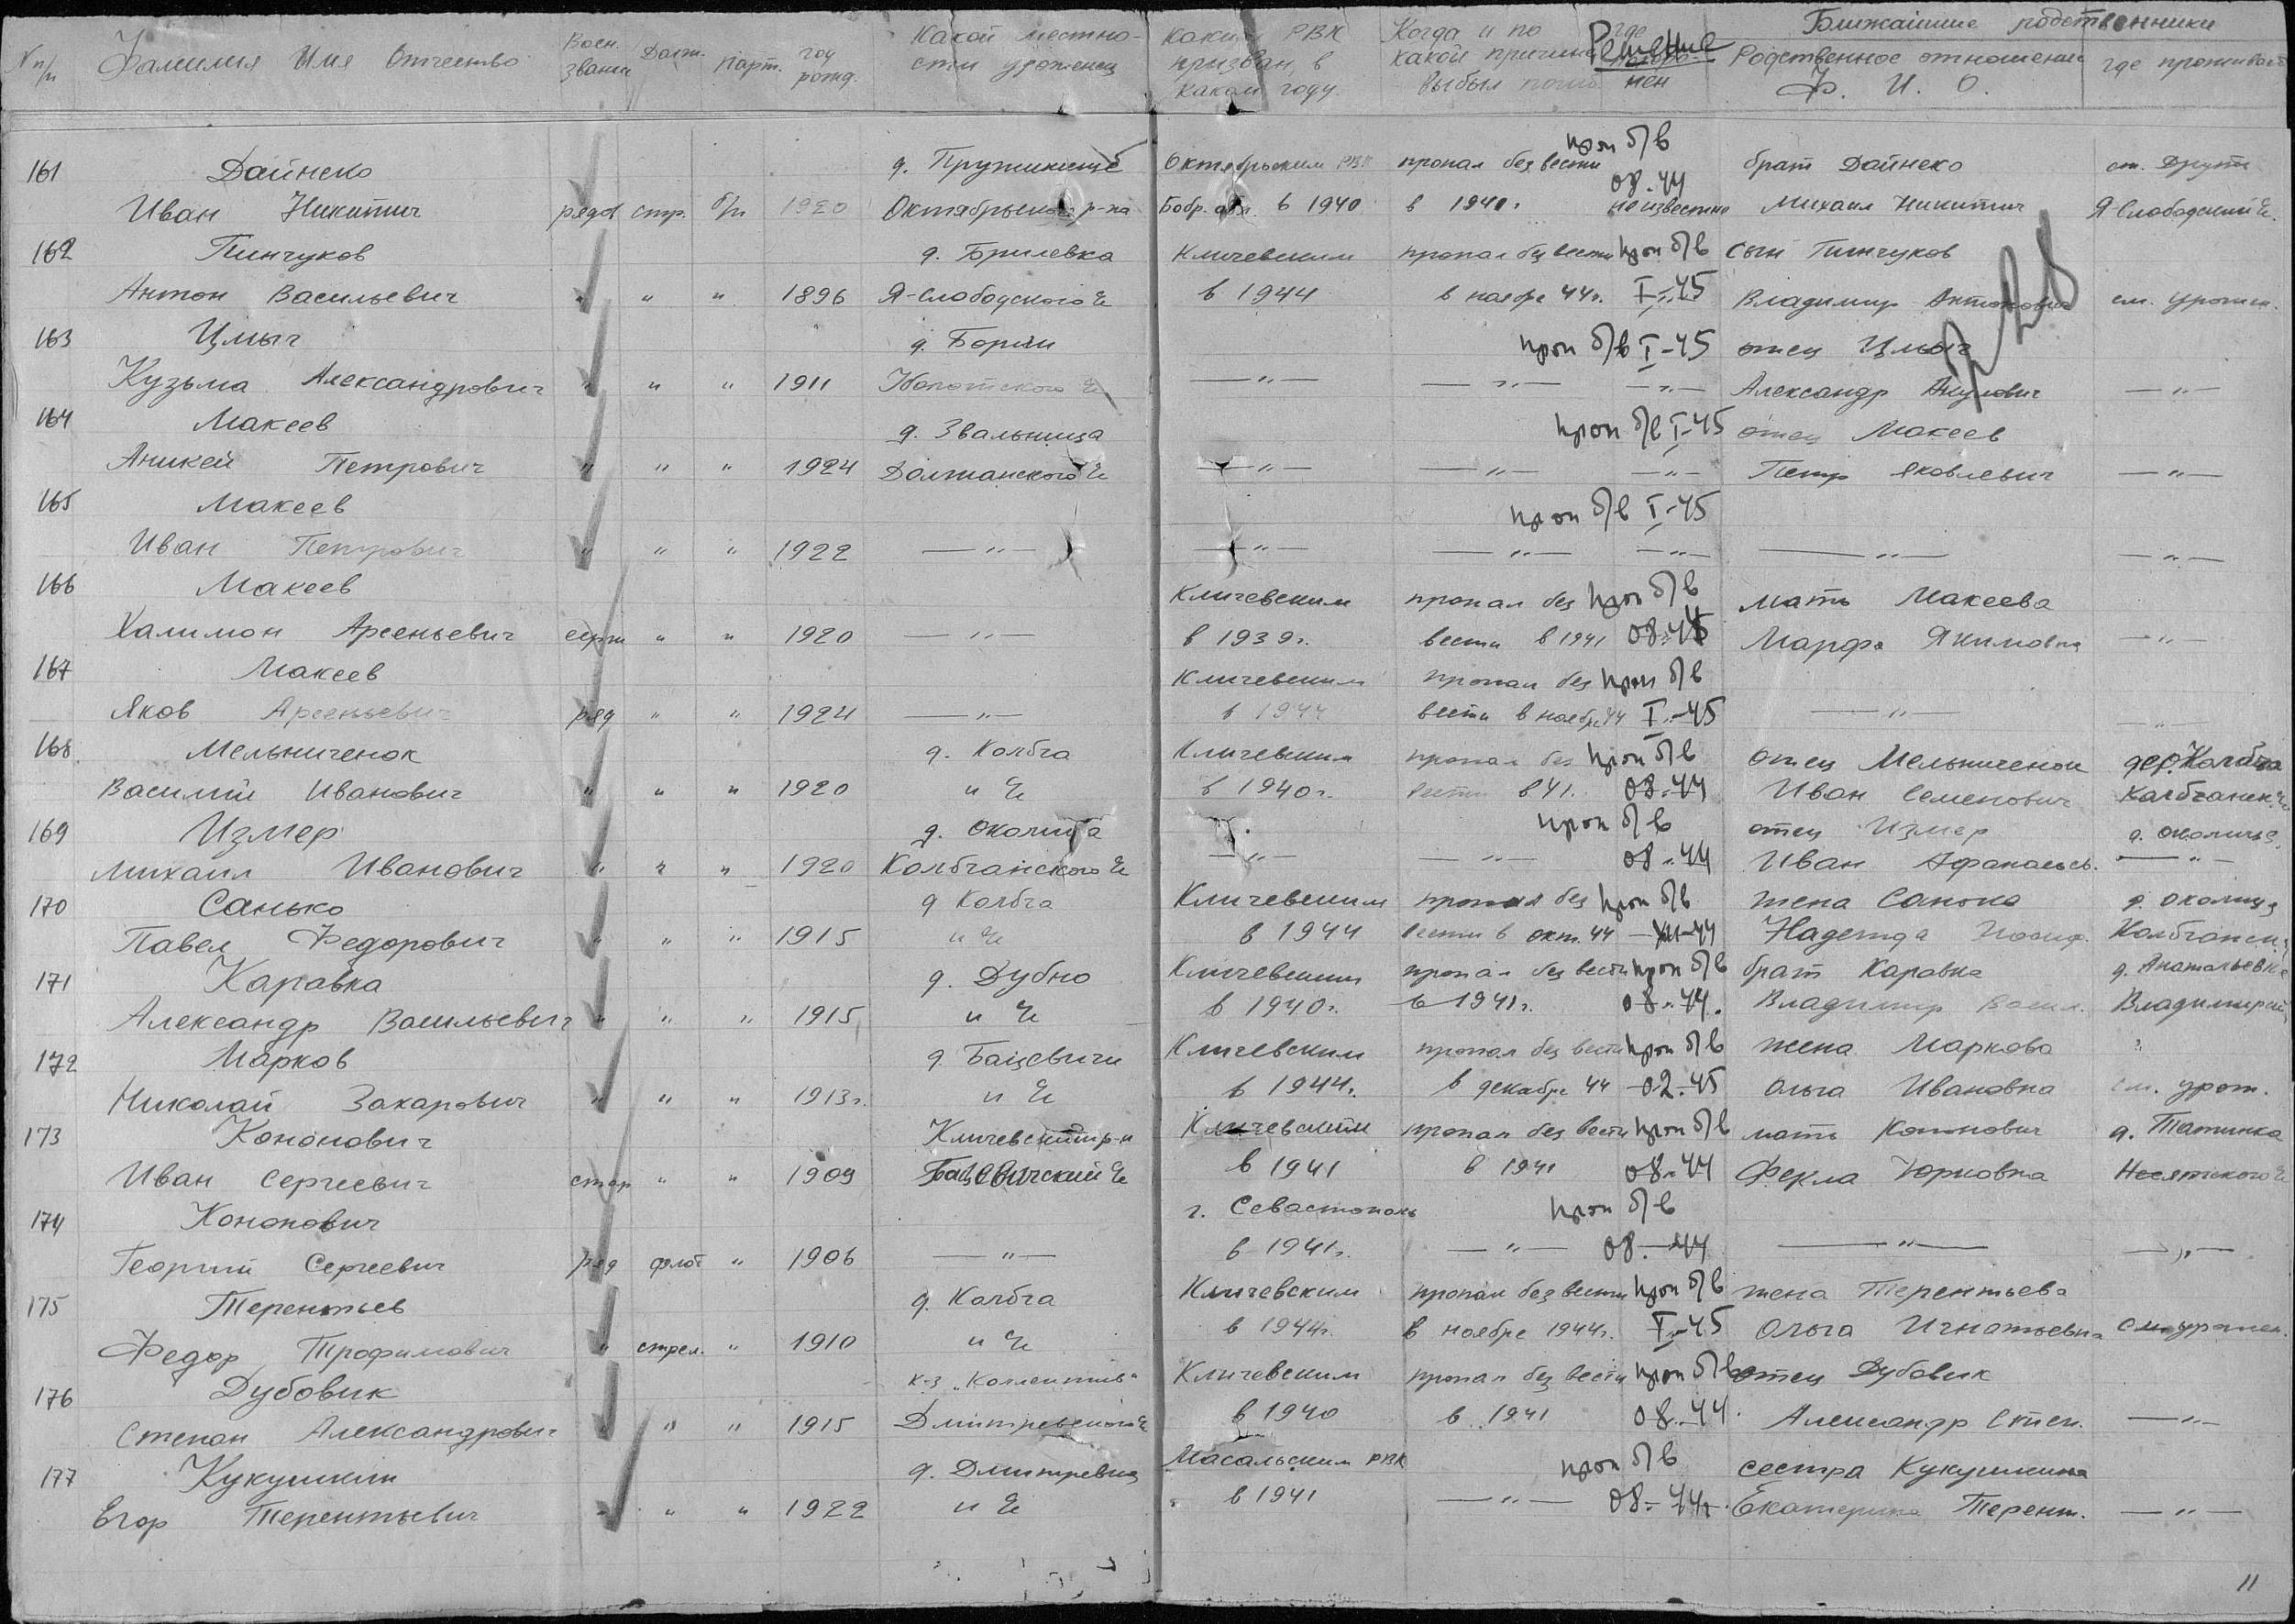 № п/п Фамилия Имя Отчество Воен. звание Долж. Парт. год рожд. Какой местности уроженец Каким РВК призван, в каком году Когда и по какой причине выбыл где Решение Ближайшие родственники Родственное отношение Ф. И. О. где проживает
161 Дайнеко д. Октябрьским РВК пропал без вести проп б/в брат Дайнеко ст. Друти
Иван Никитич рядов стр. б/п 1920 Октябрьского р-на Бобр. обл. в 1940 в 1941. 08.44 неизвестно Михаил Никитич Я-Слободский
162 Пинчуков д. Брилевка Кличевским пропал без вести проп б/в сын Пинчуков
Антон Васильевич " " " 1896 Я-Слободского в 1944 в ноябре 44г. I-45 Владимир Антонович см. урожен.
163 Цмыг д. Борки проп б/в I-45 отец Цмыг
Кузьма Александрович " " " 1911 — " — — " — — " — Александр — " —
164 Макеев д. Звальница проп б/в I-45 отец Макеев
Аникей Петрович " " " 1924 Долманского — " — — " — — " — Петр Яковлевич — " —
165 Макеев проп б/в I-45
Иван Петрович " " " 1922 — " — — " — — " — — " — — " — — " —
166 Макеев Кличевским пропал без проп б/в мать Макеева
Халимон Арсеньевич серж " " 1920 — " — в 1939г. вести в 1941 08.44 Марфа Якимовна — " —
167 Макеев Кличевским пропал без проп б/в
Яков Арсеньевич ряд " " 1924 — " — в 1944 вести в ноябре 44 I-45 — " — — " —
168. Мельниченок д. Колбча Кличевским пропал без проп б/в отец Мельниченок дер. Колбча
Василий Иванович " " " 1920 в 1940г. вести в 41. 08.44 Иван Семенович Колбчанск.
169 Измер д. Околица проп б/в отец Измер д. околица
Михаил Иванович " " " 1920 Колбчанского — " — — " — 08.44 Иван Афанасьев. — " —
170 Санько д Колбча Кличевским пропал без проп б/в жена Санько д. околица
Павел Федорович " " " 1915 в 1944 вести в окт. 44 XII-44 Надежда Иосиф. Колбчанск
171 Каравка д. Дубно Кличевским пропал без вести проп б/в брат Каравка д. Анатольевка
Александр Васильевич " " " 1915 в 1940г. в 1941г. 08.44. Владимир Васил. Владимирский
172 Марков д. Бацевичи Кличевским пропал без вести проп б/в жена Маркова "
Николай Захарович " " " 1913г. в 1944г. в декабре 44 02.45 Ольга Ивановна см. урож.
173 Кононович Кличевский р-н Кличевским пропал без вести проп б/в мать Кононович д. Татинка
Иван Сергеевич " " 1909 Бацевичский в 1941 в 1941 08.44 Фекла Несятского
174 Кононович г. Севастополь проп б/в
Георгий Сергеевич ряд флот " 1906 — " — в 1941г. — " — 08.44 — " — — " —
175 Терентьев д. Колбча Кличевским пропал без вести проп б/в жена Терентьева
Федор Трофимович " стрел. " 1910 в 1944г. в ноябре 1944г. I-45 Ольга Игнатьевна см. урожен.
176 Дубовик к-з „Коллектив" Кличевским пропал без вести проп б/в отец Дубовик
Степан Александрович " " " 1915 Дмитревского в 1940 в 1941 08.44. Александр Степ. — " —
177 Кукушкин д. Дмитревка Масальским РВК проп б/в сестра Кукушкина
Егор Терентьевич " " " 1922 в 1941 — " — 08.44. Екатерина Терент. — " —
11